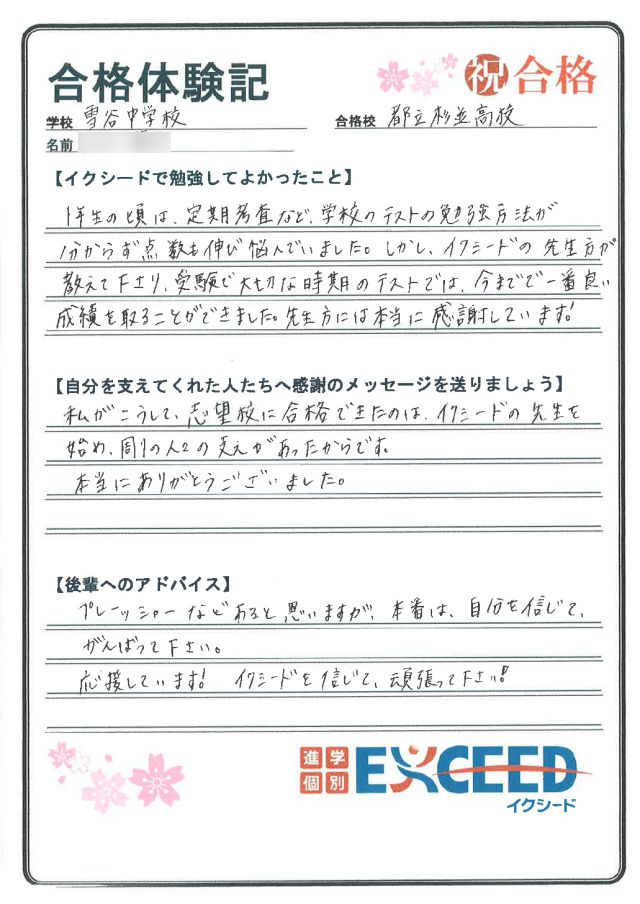 合格体験記
祝 合格
学校 雪谷中学校 合格校 都立杉並高校
名前
【イクシードで勉強してよかったこと】
1年生の頃は、定期考査など、学校のテストの勉強方法が
分からず点数も伸び悩んでいました。しかし、イクシードの先生方が
教えて下さり、受験で大切な時期のテストでは、今までで一番良い
成績を取ることができました。先生方には本当に感謝しています!
【自分を支えてくれた人たちへ感謝のメッセージを送りましょう】
私がこうして、志望校に合格できたのは、イクシードの先生を
始め、周りの人々の支えがあったからです。
本当にありがとうございました。
【後輩へのアドバイス】
プレッシャーなどあると思いますが、本番は、自分を信じて、
がんばって下さい。
応援しています! イクシードを信じて、頑張って下さい!
進学
個別
EXCEED
イクシード